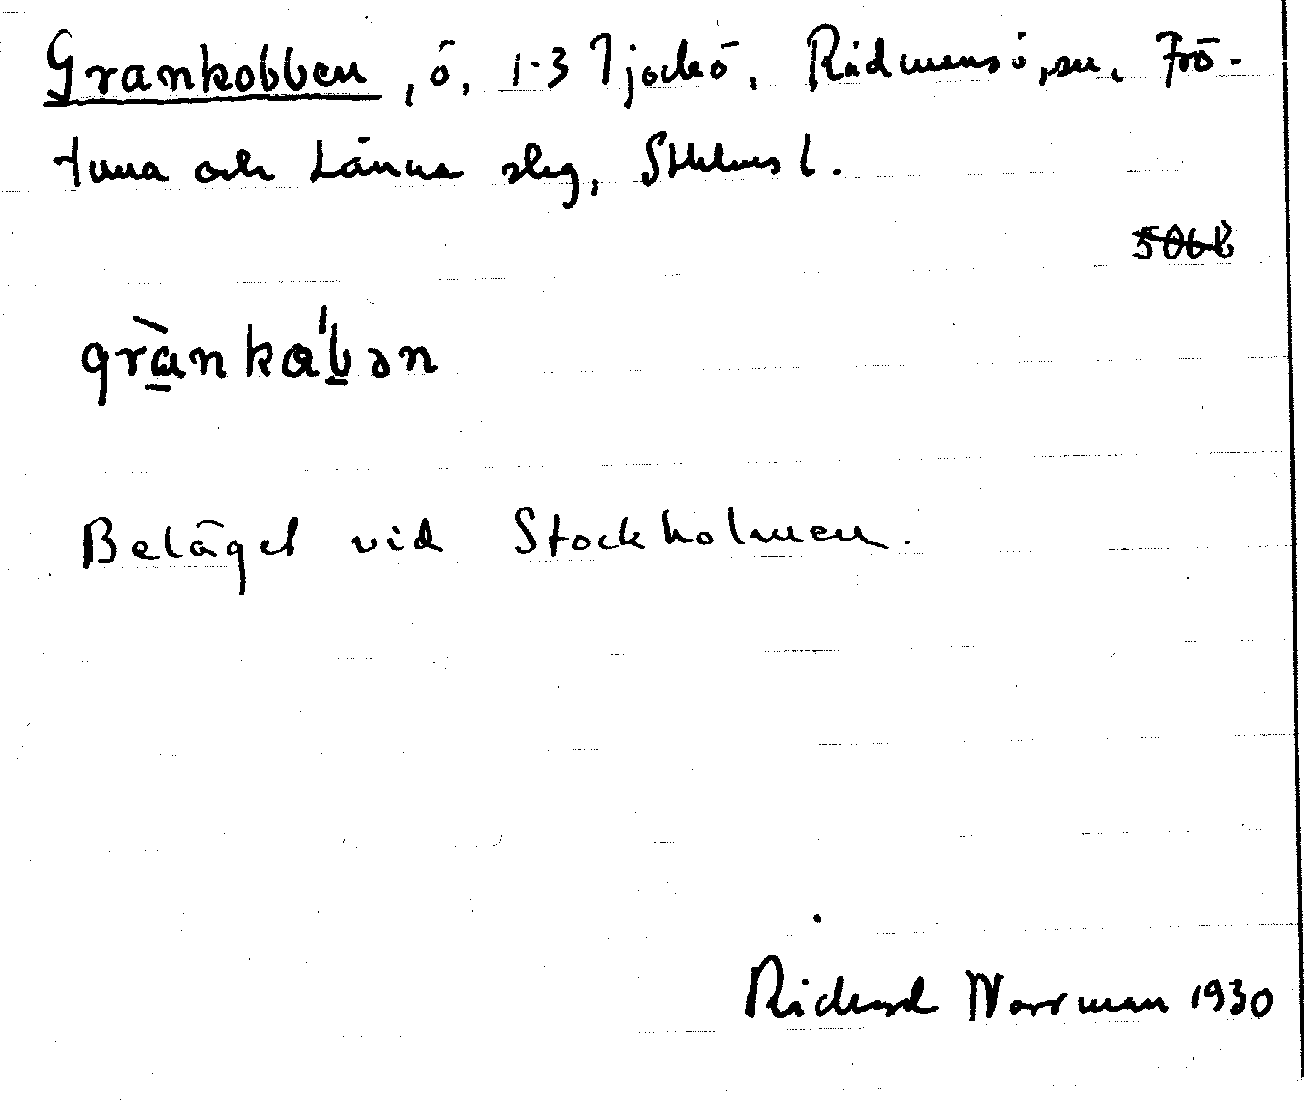 Grankobben, ö, 1-3 Tjockö, Rådmansö, sn, Frö-
tuna och Länna slg, Sthlms l.
5068
grànka'bən
Beläget vid Stockholmen.
Rickard Norrman 1930